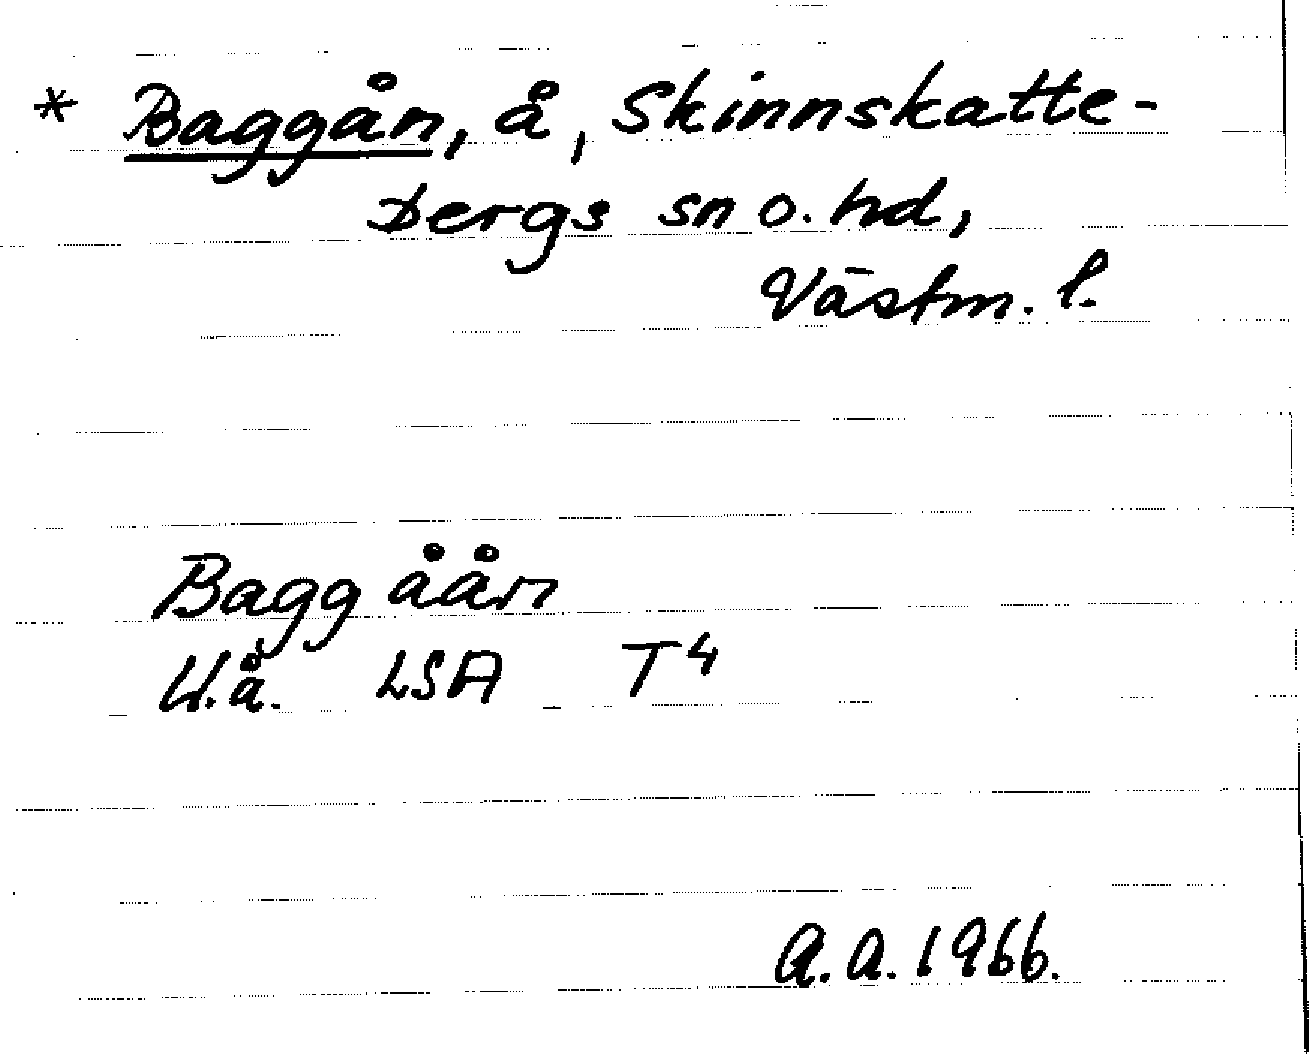 * Baggån, å, Skinnskatte-
bergs sn o. hd,
Västm. l.
Bagg åån
U.å. LSA T4
A.A. 1966.